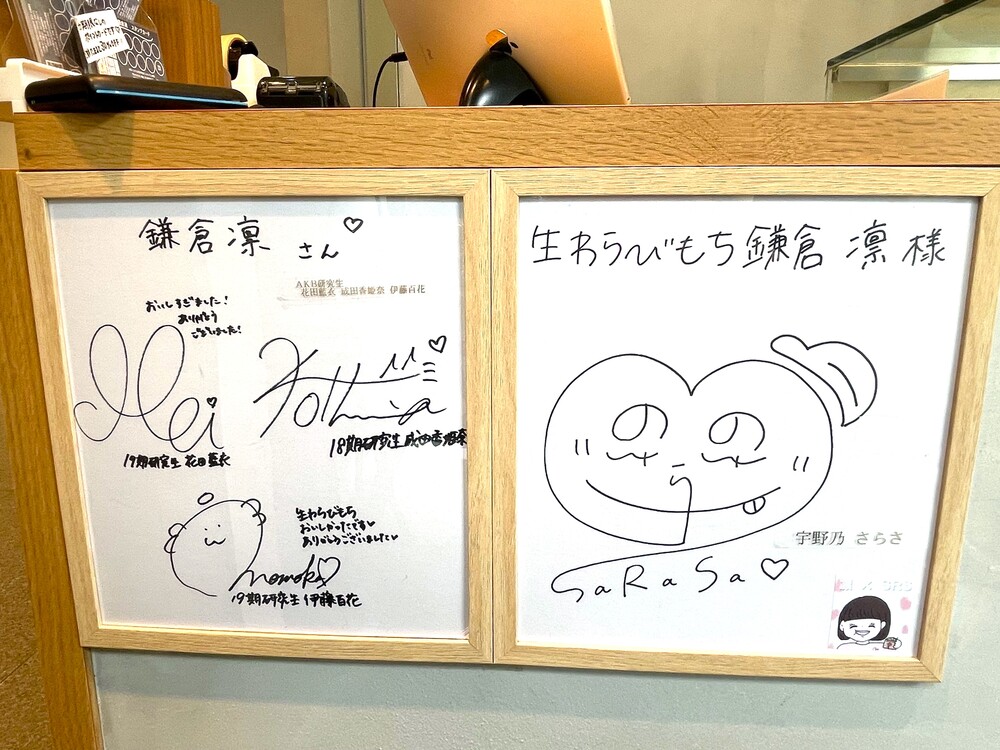 鎌倉凛 さん♡
AKB研究生
花田藍衣 成田香姫奈 伊藤百花
おいしすぎました!
ありがとう
ございました!
Mei
19期研究生 花田藍衣
18期研究生 成田香姫奈
生わらびもち
おいしかったです♥
ありがとうございました♥
momoka♡
19期研究生 伊藤百花
生わらびもち鎌倉 凛 様
のの
う
SaRaSa♡
宇野乃 さらさ